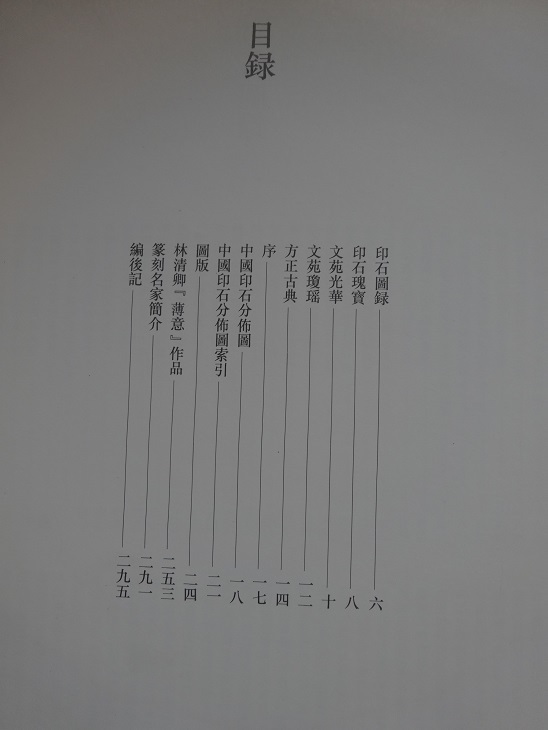 目録
印石圖録 六
印石瑰寶 八
文苑光華 十
文苑瓊瑶 一二
方正古典 一四
序 一七
中國印石分佈圖 一八
中國印石分佈圖索引 二一
圖版 二四
林清卿『薄意』作品 二五三
篆刻名家簡介 二九一
編後記 二九五